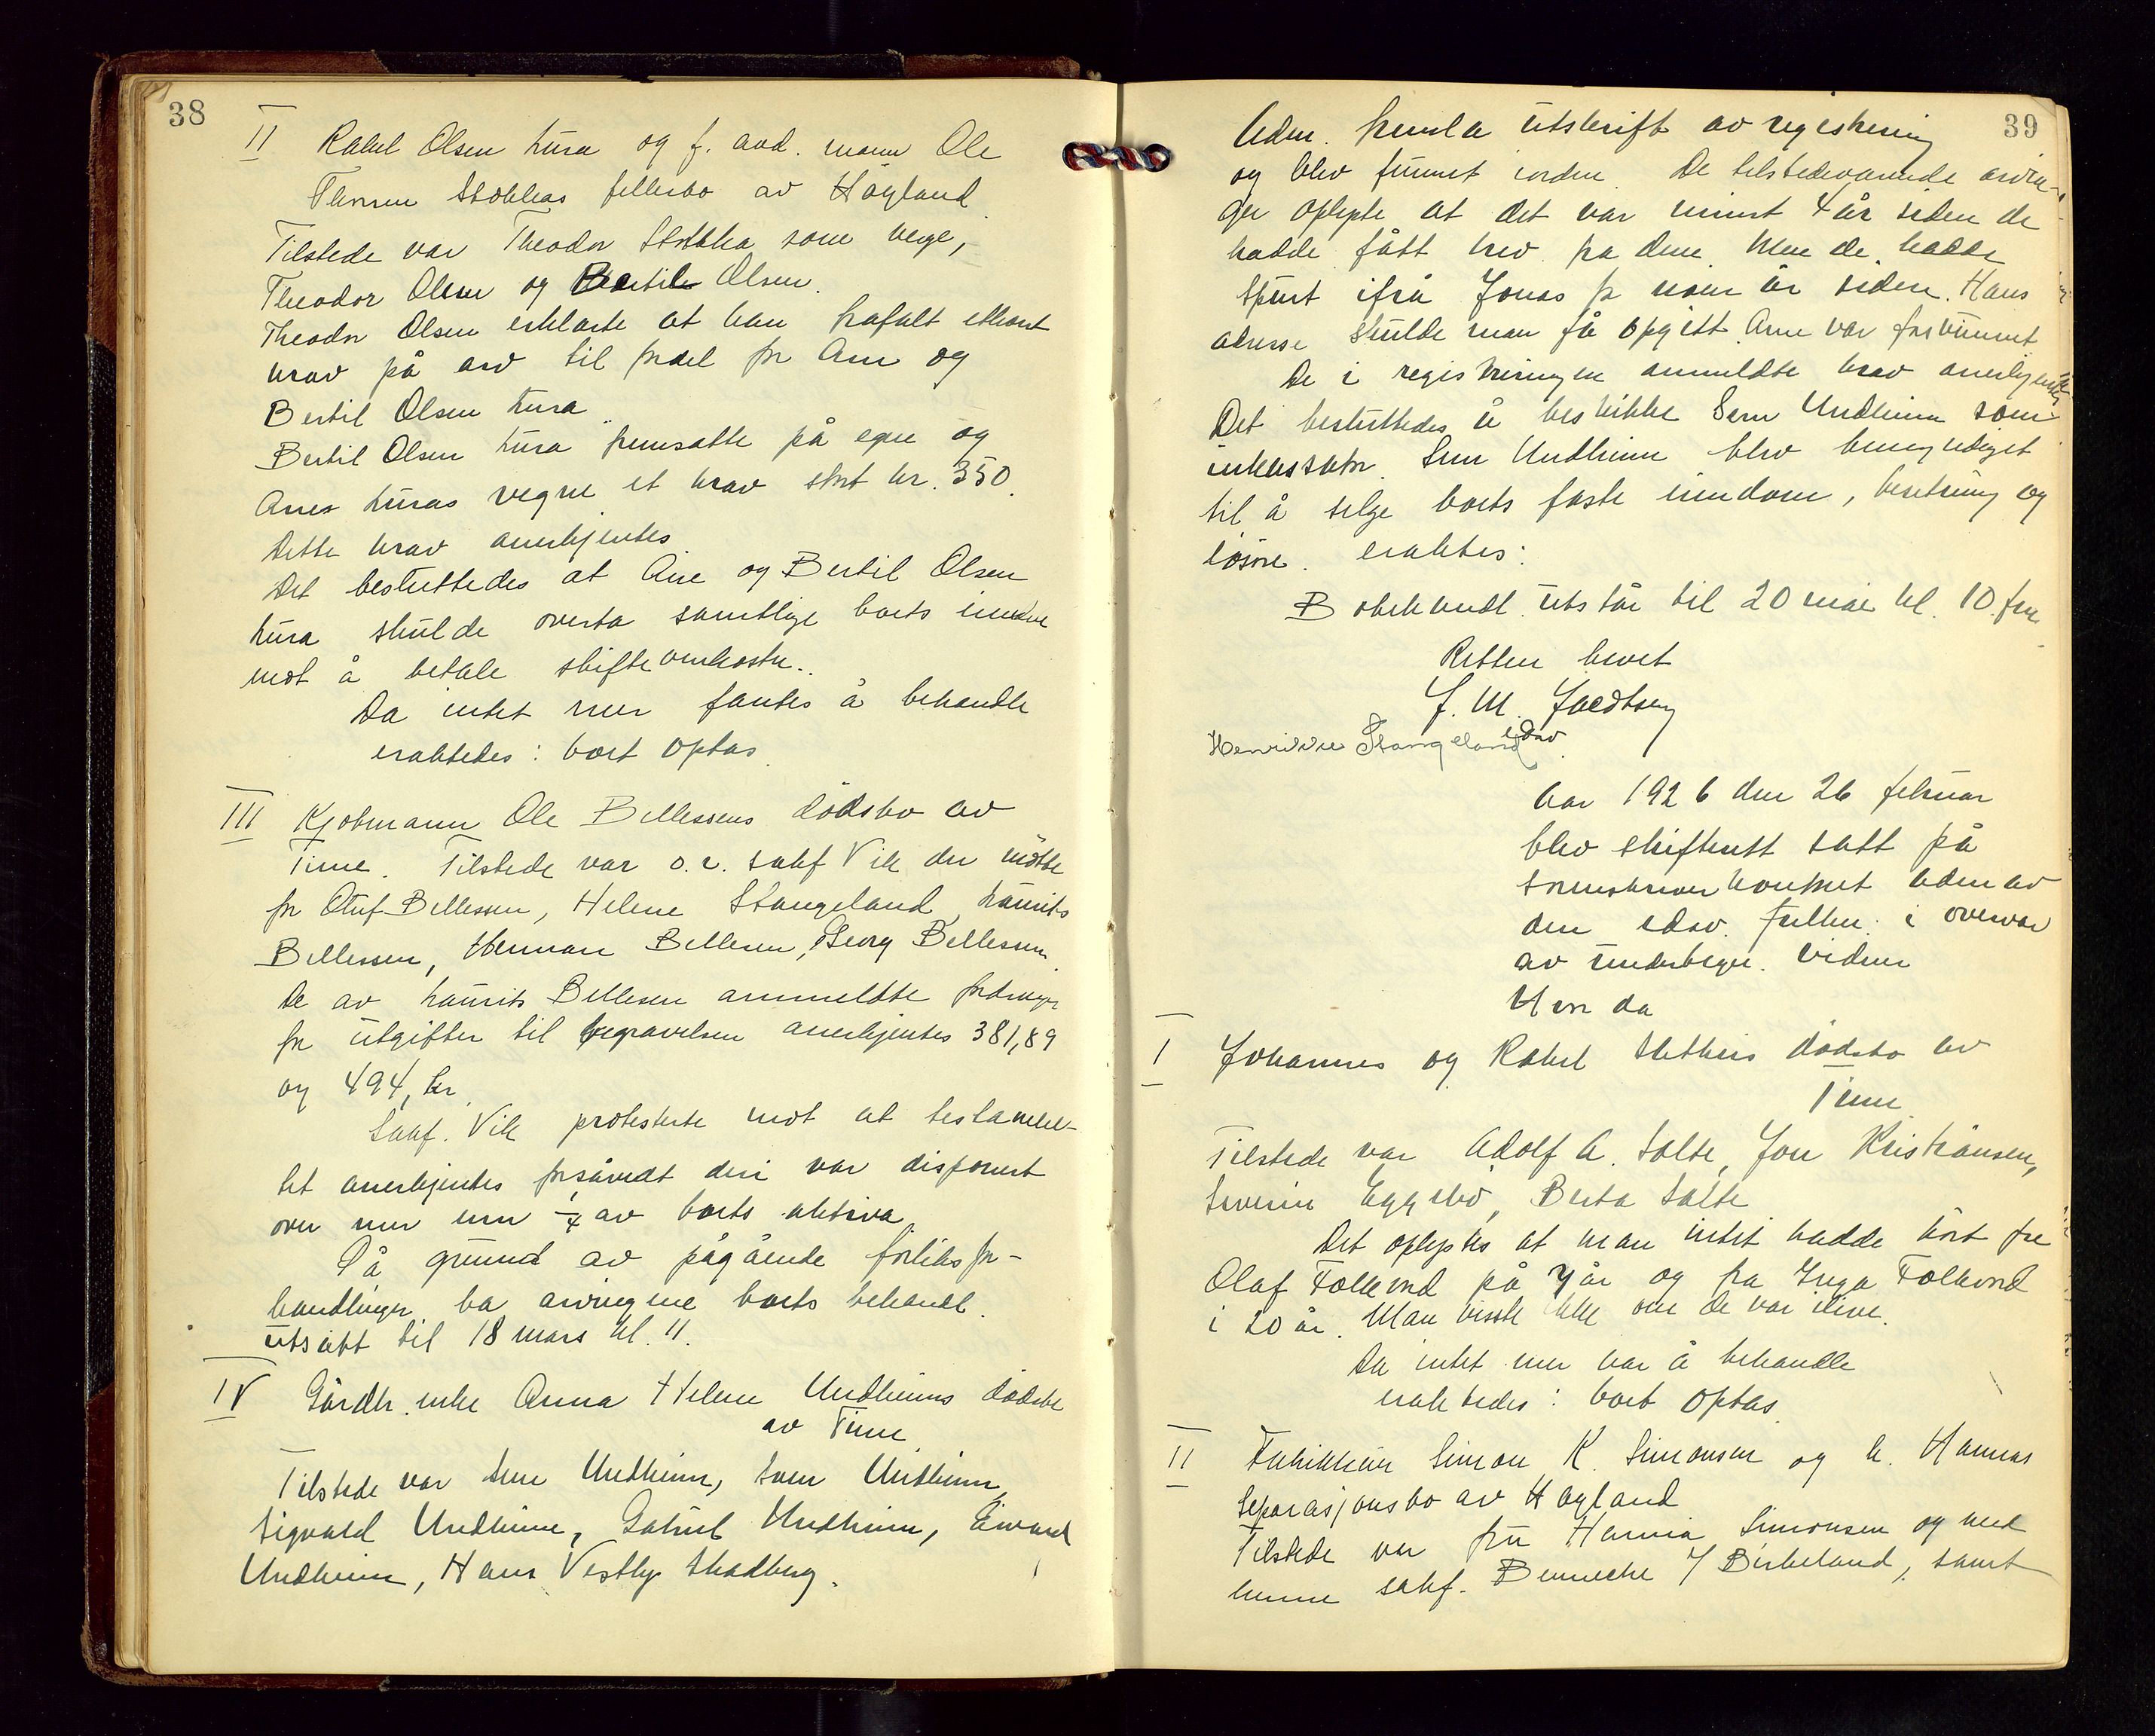 38
II Rakel Olsen Lura og f. avd. mann Ole
Thorsen Stokkas fellesbo av Høyland
Tilstede var Theodor Stokka som verge,
Theodor Olsen og Bertil Olsen.
Theodor Olsen erklærte at han frafalt ethvert
krav på arv til fordel for Ane og
Bertil Olsen Lura
Bertil Olsen Lura fremsatte på egne og
Anes Luras vegne et krav stort kr. 350.
Dette krav anerkjentes
Det besluttedes at Ane og Bertil Olsen
Lura skulde overta samtlige boets eiendele
mot å betale skifteomkostn.
Da intet mer fantes å behandle
eraktedes: boet optas
III Kjøbmann Ole Bellessens dødsbo av
Time. Tilstede var o.r. sakf Vik der møtte
for Oluf Bellessen, Helene Stangeland, Laurits
Bellessen, Herman Bellesen, Georg Bellessen.
De av Laurits Bellesen anmeldte fordringer
for utgifter til begravelsen anerkjentes 381,89
og 494, kr.
Sakf. Vik protesterte mot at testamen-
tet anerkjentes forsåvidt deri var disponert
over mer enn 1/4 av boets aktiva
På grund av pågående forliksfor-
handlinger ba arvingene boets behandl.
utsatt til 18 mars kl. 11.
IV Gårdbr. enke Anna Helene Undheims dødsbo
av Time
Tilstede var Sem Undheim, Sven Undheim,
Sigvald Undheim, Gabriel Undheim, Eivind
Undheim, Hans Vestly Skadberg.
39
Adm. fremla utskrift av registrering
og blev funnet iorden. De tilstedeværende arvin-
ger oplyste at det var minst 4 år siden de
hadde fått brev fra dem. Men de hadde
spurt ifra Jonas for noen år siden. Hans
adresse skulde man få opgitt. Arne var forsvunnet
De i registreringen anmeldte krav anerkjentes
Det besluttedes å beskikke Sem Undheim som
inkassator. Sem Undheim blev bemyndiget
til å selge boets faste eiendom, besetning og
løsøre. eraktes:
Bobehandl. utstår til 20 mai kl. 10 fm.
Retten hevet
J. M. Jacobsen
edsv.
Henrikke Stangeland
Aar 1926 den 26 februar
blev skifterett satt på
sorenskriverkontoret adm av
den edsv. fullm. i overvær
av underteg. vidner
Hvor da
I Johannes og Rakel Slettheis dødsbo av
Time
Tilstede var Adolf A. Salte, Jon Kristiansen,
Severin Eggebø, Berta Salte
Det oplystes at man intet hadde hørt fra
Olaf Folkvord på 7 år og fra Inga Folkvord
i 20 år. Man visste ikke om de var ilive.
Da intet mer var å behandle
eraktedes: boet optas
II Fabrikkeier Simon K. Simonsen og h. Hannas
separasjonsbo av Høyland
Tilstede var fru Hanna Simonsen og med
henne sakf. Bennecke / Birkeland, samt